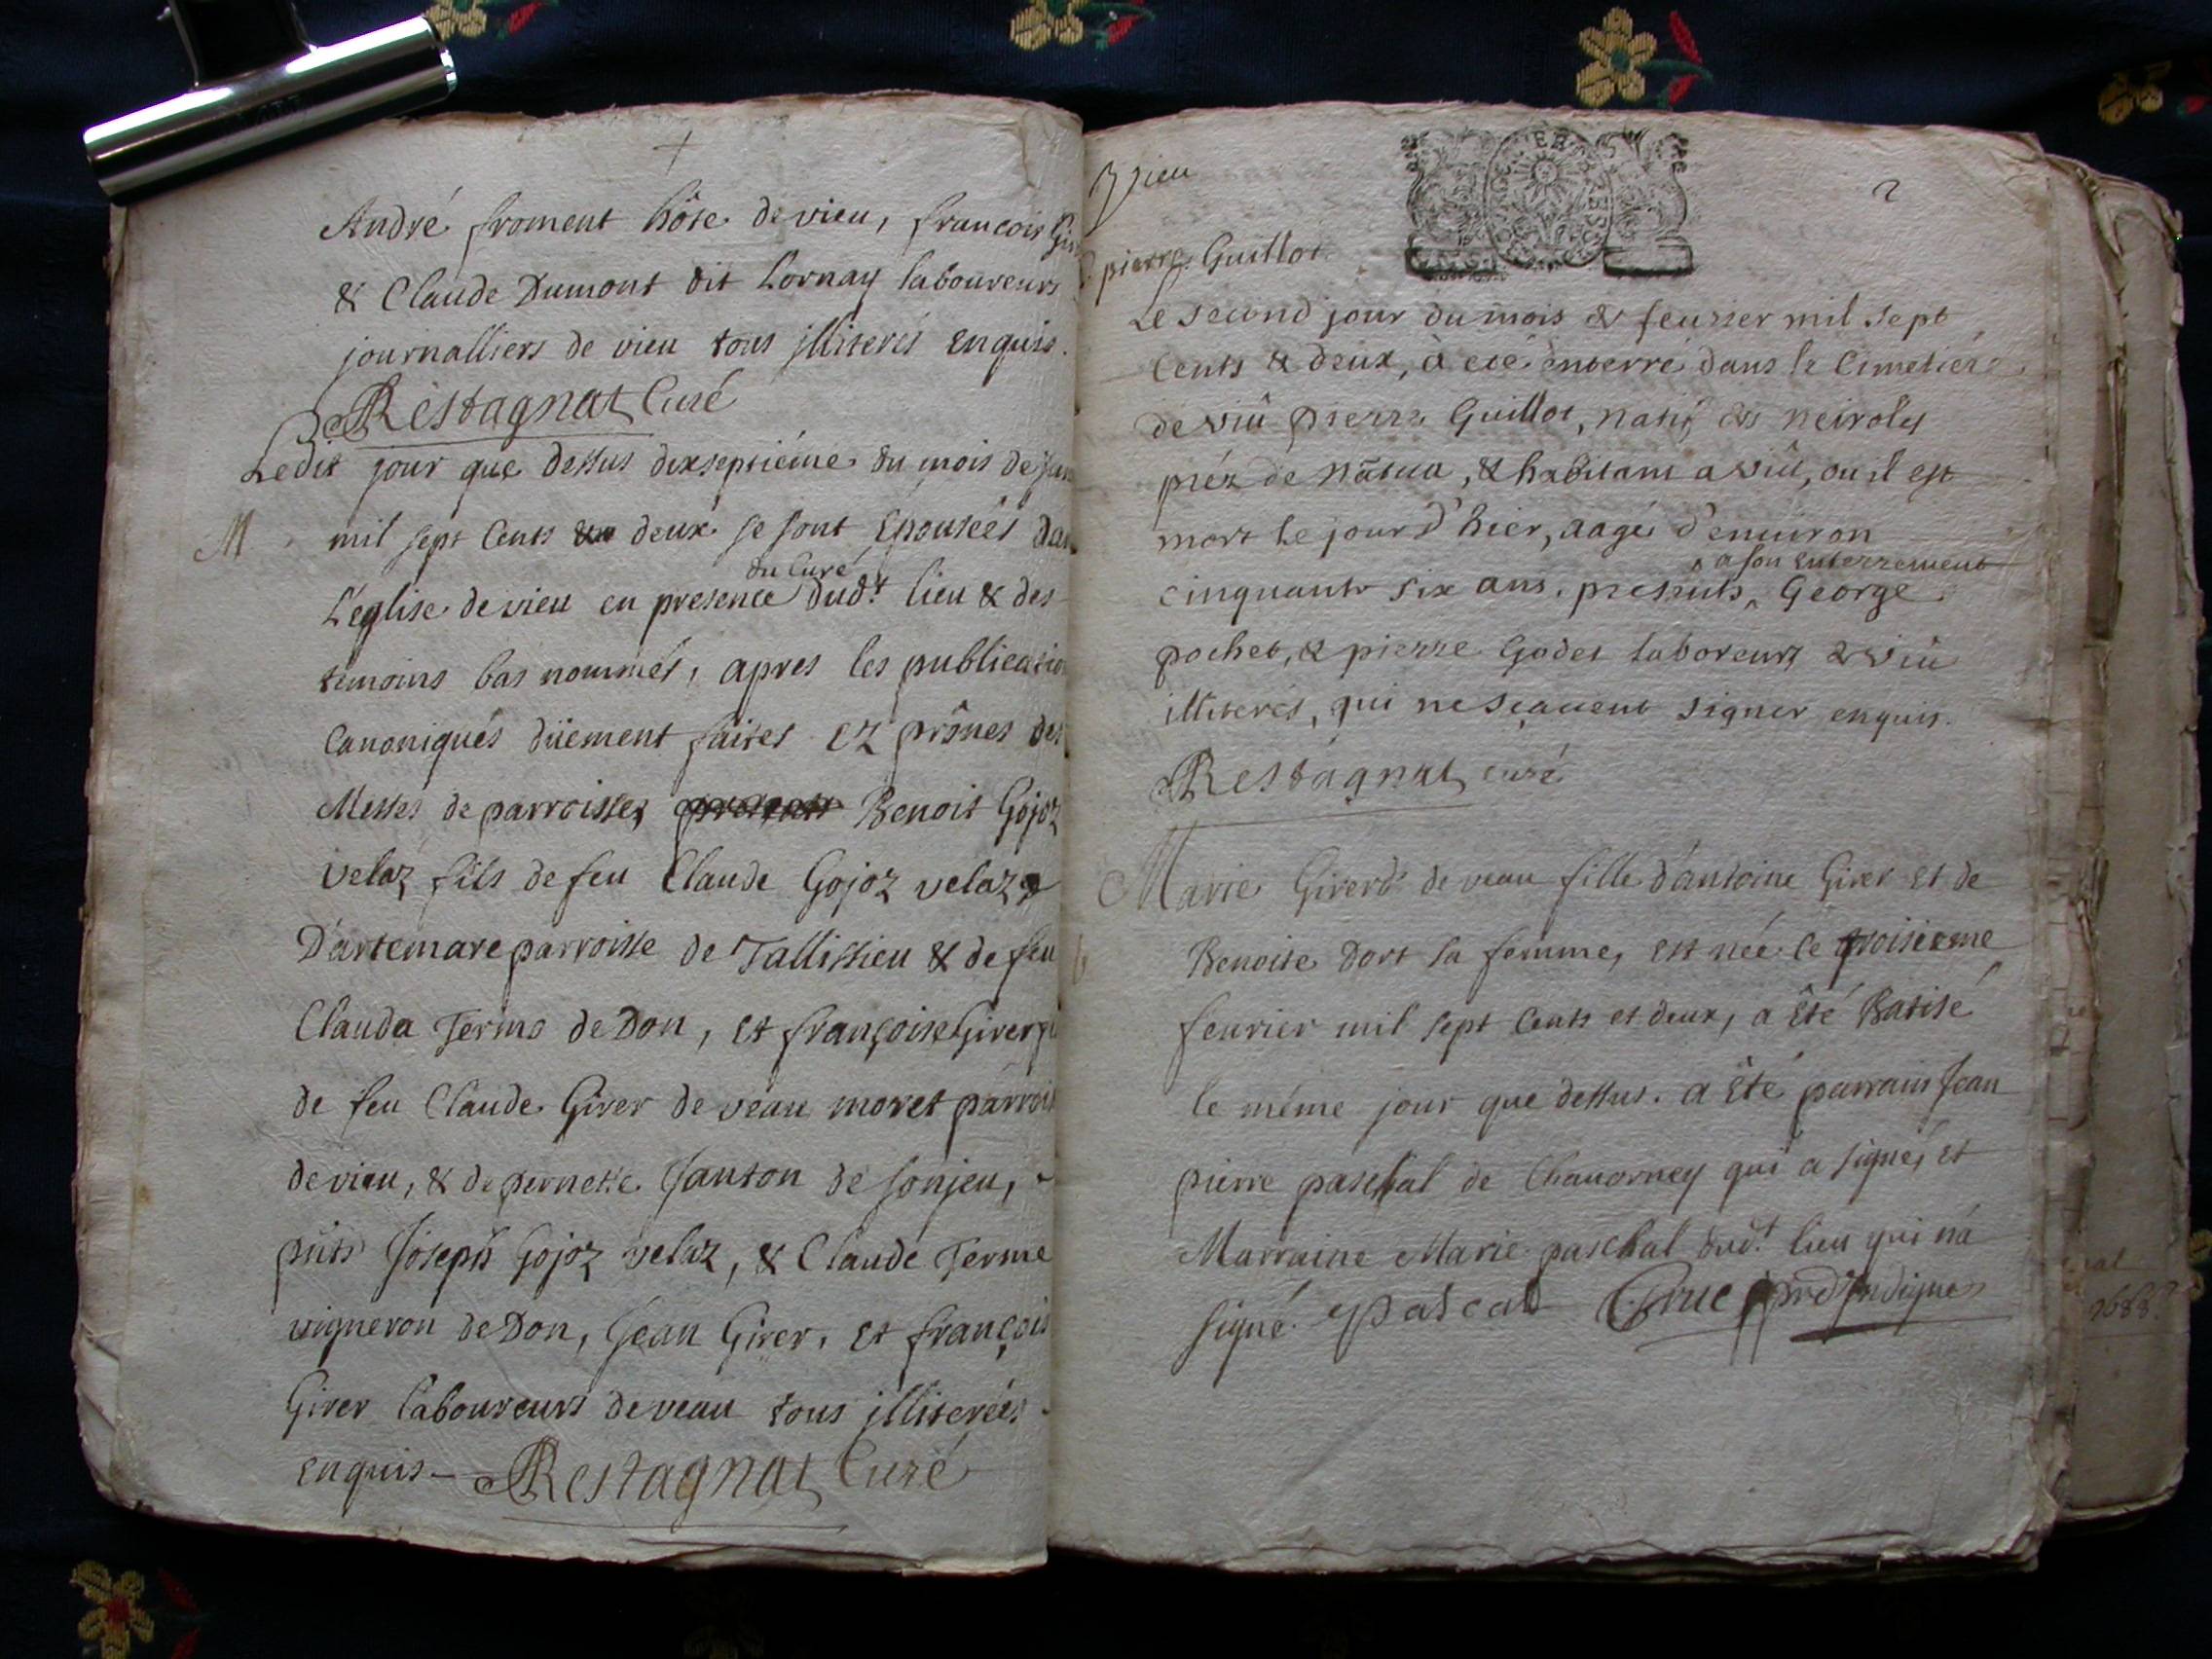 André froment hôte de vieu, francois
& Claude Dumont dit Lornay laboureurs
journalliers de vieu tous illiterés enquis.
Restagnat Curé
Ledit jour que dessus dixseptiéme du mois de
M
mil sept Cents deux se sont Epousées
du Curé
L'eglise de vieu en presence dud.t lieu & des
temoins bas nommés, apres les
Canoniqués düement faites ez prônes des
Messes de parroisses Benoit Gojoz
velaz fils de feu Claude Gojoz velaz
D'artemare parroisse de Tallissieu & de feu
Clauda Terme de Don, et françoise Girer
de feu Claude Girer de veau moret
de vieu, & de pernette Janton de Sonjeu,
pñts Joseph Gojoz velaz, & Claude Terme
vigneron de Don, Jean Girer, et françois
Girer laboureurs de veau tous illiterées
enquis - Restagnat Curé
Vieu
2
pierre Guillot
Le second jour du mois de feurier mil sept
Cents & deux, à eté enterré dans le Cimetiére
de viû pierre Guillot, natif de neiroly
préz de nãtua, & habitant a viû, ou il est
mort le jour d'hier, aagé d'enuiron
a son enterrement
cinquante six ans. presents, George
pochet, & pierre Godet laboreurs de viû
illiterés, qui ne sçauent signer enquis.
Restagnat curé
Marie Girerd de veau fille d'antoine Girer et de
Benoite Dort sa femme, est née le troisieme
feurier mil sept Cents et deux, a Êté Batisé
le méme jour que dessus. a Êté parrain Jean
pierre paschal de Chauorney qui a signé, et
Marraine Marie paschal dud.t lieu qui n'a
signé. Pascal
1688